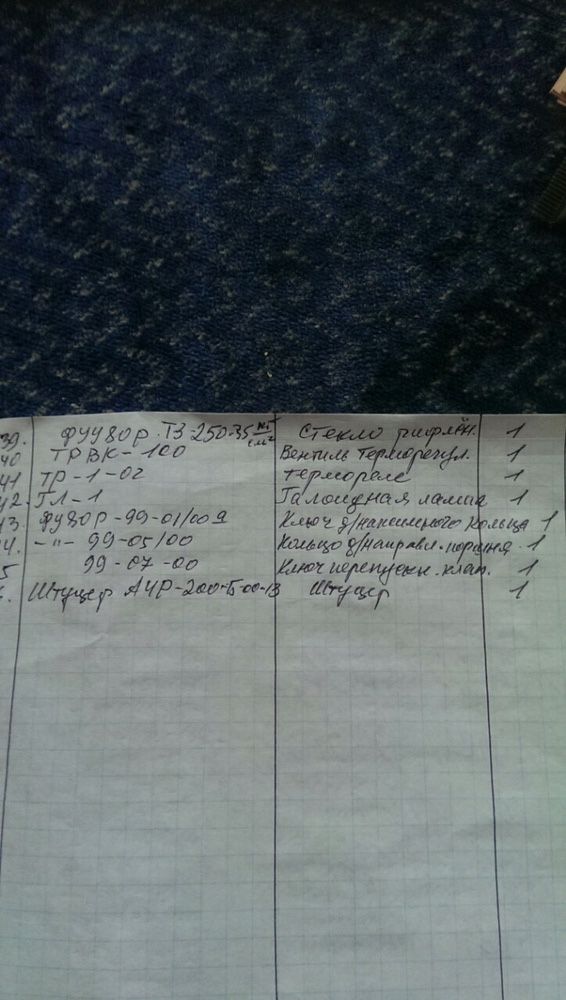 39. ФУУ80Р. Т3-250-35 кг/см² Стекло рифлён. 1
40 ТРВК-100 Вентиль терморегул. 1
41 ТР-1-02 термореле 1
42. ГЛ-1 Галоидная лампа 1
43 ФУ80Р-99-01/00 Ключ д/накидного кольца 1
44. -"- 99-05/00 Кольцо д/направл. поршня. 1
5 99-07-00 Ключ перепускн. клап. 1
Штуцер АУР-200-Б-00-13 Штуцер 1